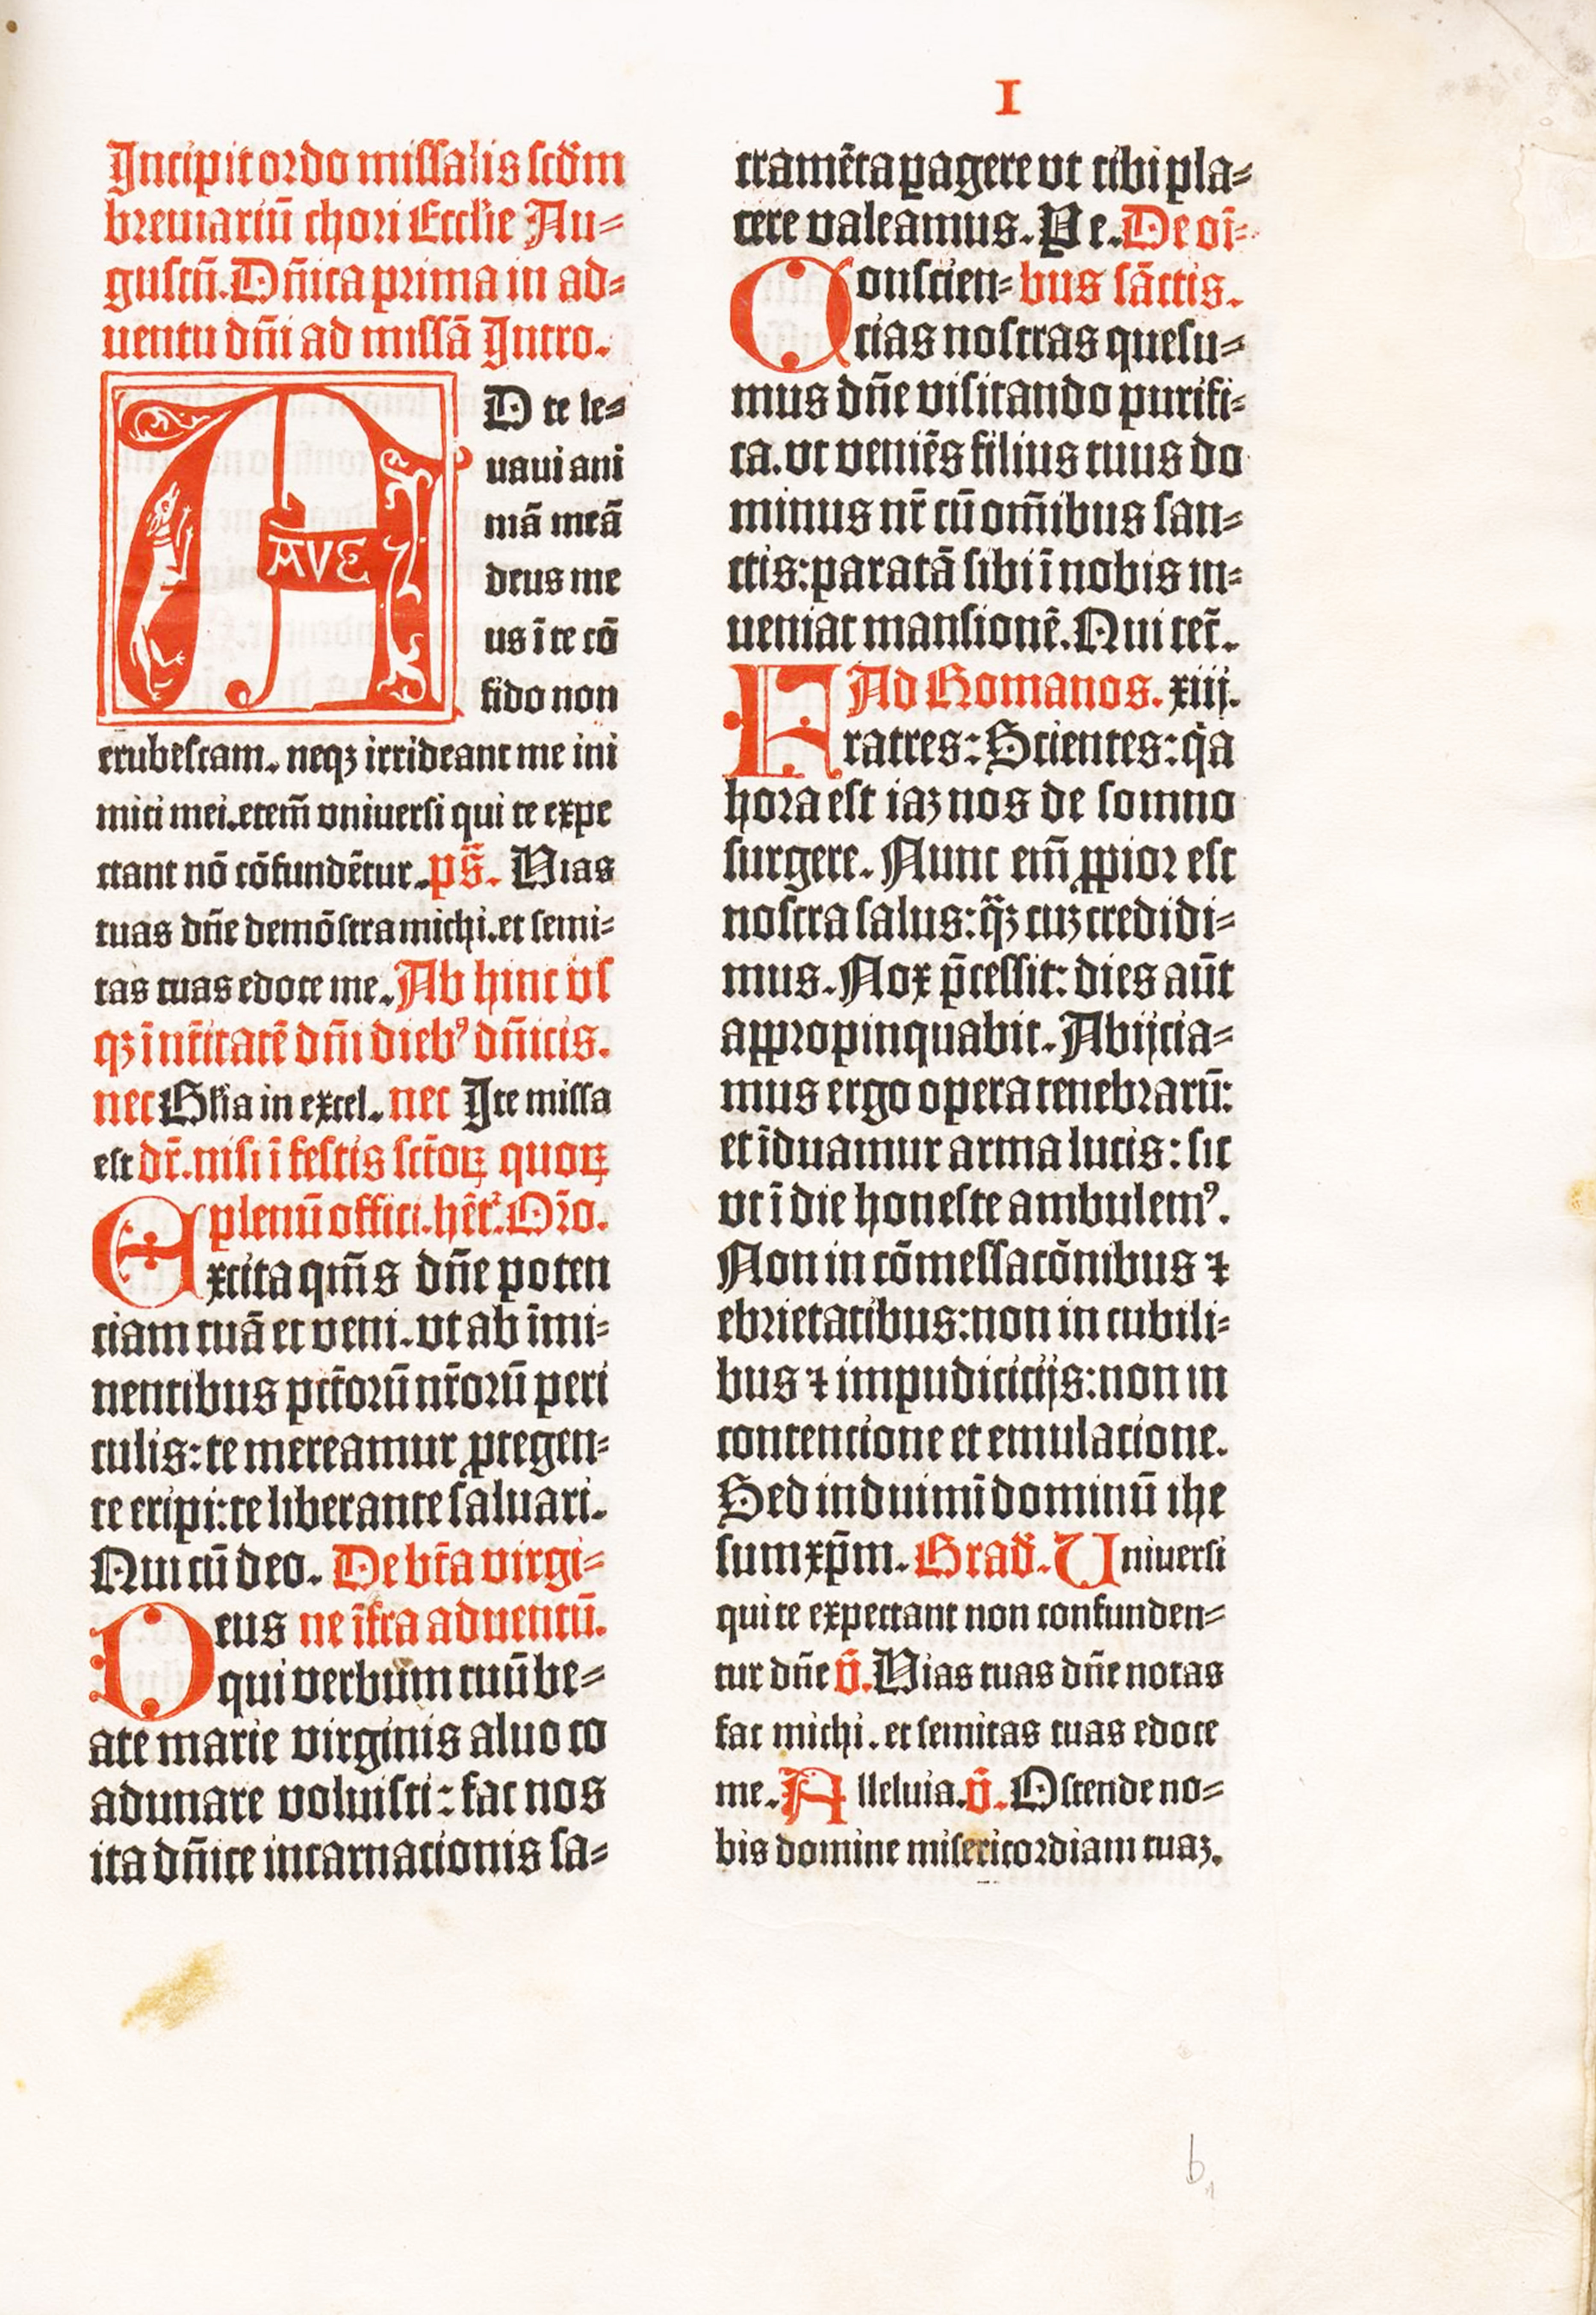 I
Incipit ordo missalis scdm̄
breuiariū chori Ecclīe Au⸗
gustn̄. Dn̄ica prima in ad⸗
uentu dn̄i ad missā Intro.
AD te le⸗
AVE
uaui ani
mā meā
deus me
us ī te cō
fido non
erubescam. neqꝫ irrideant me ini
mici mei. etem̄ vniuersi qui te expe
ctant nō cōfundētur. ps̄. Vias
tuas dn̄e demōstra michi. et semi⸗
tas tuas edoce me. Ab hinc vs
qꝫ ī nt̄itatē dn̄i diebꝰ dn̄icis.
nec Gl̄ia in excel. nec Ite missa
est dr̄. nisi ī festis sct̄oꝝ quoꝝ
plenū offici. hēt᷑. Or̄o.
Excita qm̄s dn̄e poten
ciam tuā et veni. vt ab īmi⸗
nentibus pct̄orū nr̄orū peri
culis: te mereamur ꝓtegen⸗
te eripi: te liberante saluari.
Qui cū deo. De bt̄a virgi⸗
Deus ne īfra aduentū.
qui verbum tuū be⸗
ate marie virginis aluo co
adunare voluisti: fac nos
ita dn̄ice incarnacionis sa⸗
cramēta ꝑagere vt tibi pla⸗
cere valeamus. Pe. De oī⸗
Conscien⸗ bus sāctis.
cias nostras quesu⸗
mus dn̄e visitando purifi⸗
ca. vt veniēs filius tuus do
minus nr̄ cū om̄ibus san⸗
ctis: paratā sibi ī nobis in⸗
ueniat mansionē. Qui cet̄.
Ad Romanos. xiij.
Fratres: Scientes: qͣa
hora est iaꝫ nos de somno
surgere. Nunc em̄ ꝓpior est
nostra salus: qͣꝫ cuꝫ credidi⸗
mus. Nox p̄cessit: dies aūt
appropinquabit. Abijcia⸗
mus ergo opera tenebrarū:
et īduamur arma lucis: sic
vt ī die honeste ambulemꝰ.
Non in cōmessacōnibus ⁊
ebrietatibus: non in cubili⸗
bus ⁊ impudicicijs: non in
contencione et emulacione.
Sed induimī dominū ihe
sum xp̄m. Grad̄. Vniuersi
qui te expectant non confunden⸗
tur dn̄e v̄. Vias tuas dn̄e notas
fac michi. et semitas tuas edoce
me. Alleluia. v̄. Ostende no⸗
bis domine misericordiam tuaꝫ.
b
1